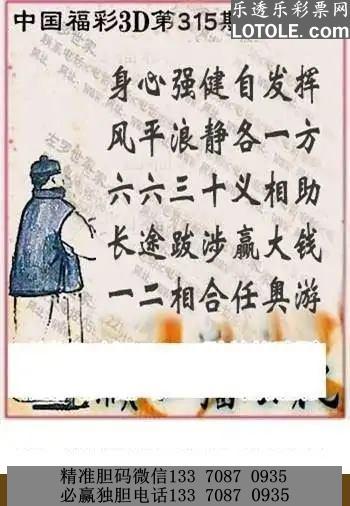 乐透乐彩票网
中国福彩3D第315期
LOTOLE.COM
身心强健自发挥
风平浪静各一方
六六三十义相助
长途跋涉赢大钱
一二相合任奥游
精准胆码微信133 7087 0935
必赢独胆电话133 7087 0935